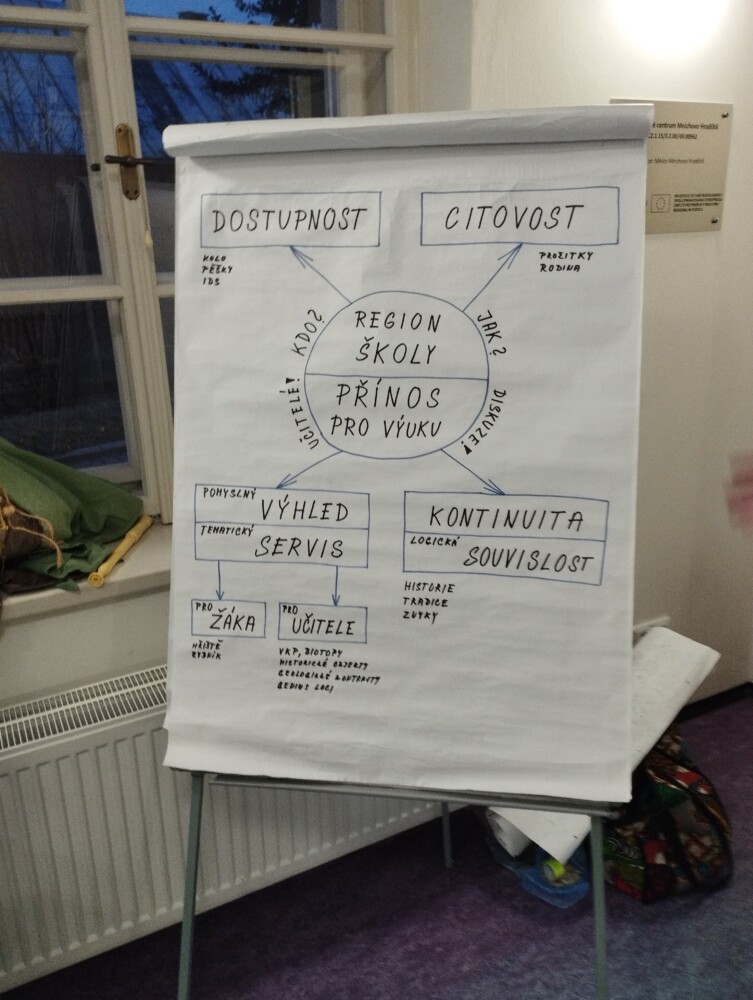 DOSTUPNOST
KOLO
PĚŠKY
IDS
CITOVOST
PROŽITKY
RODINA
KDO?
UČITELÉ!
REGION
ŠKOLY
PŘÍNOS
PRO VÝUKU
JAK?
DISKUZE!
POMYSLNÝ
VÝHLED
TEMATICKÝ
SERVIS
PRO
ŽÁKA
HŘIŠTĚ
RYBNÍK
PRO
UČITELE
VKP, BIOTOPY
HISTORICKÉ OBJEKTY
GEOLOGICKÉ
GENIUS LOCI
KONTINUITA
LOGICKÁ
SOUVISLOST
HISTORIE
TRADICE
ZVYKY
centrum Mnichovo Hradiště
Města Mnichovo Hradiště